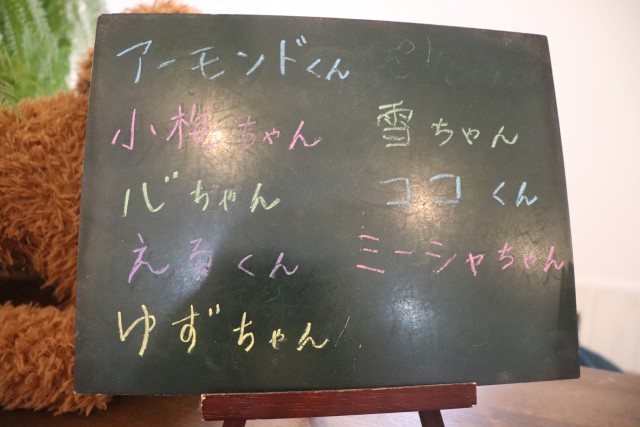 アーモンドくん
小梅ちゃん 雪ちゃん
心ちゃん ココくん
えるくん ミーシャちゃん
ゆずちゃん